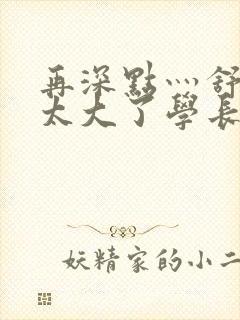 再深點灬舒
太大了學長
妖精家的小二